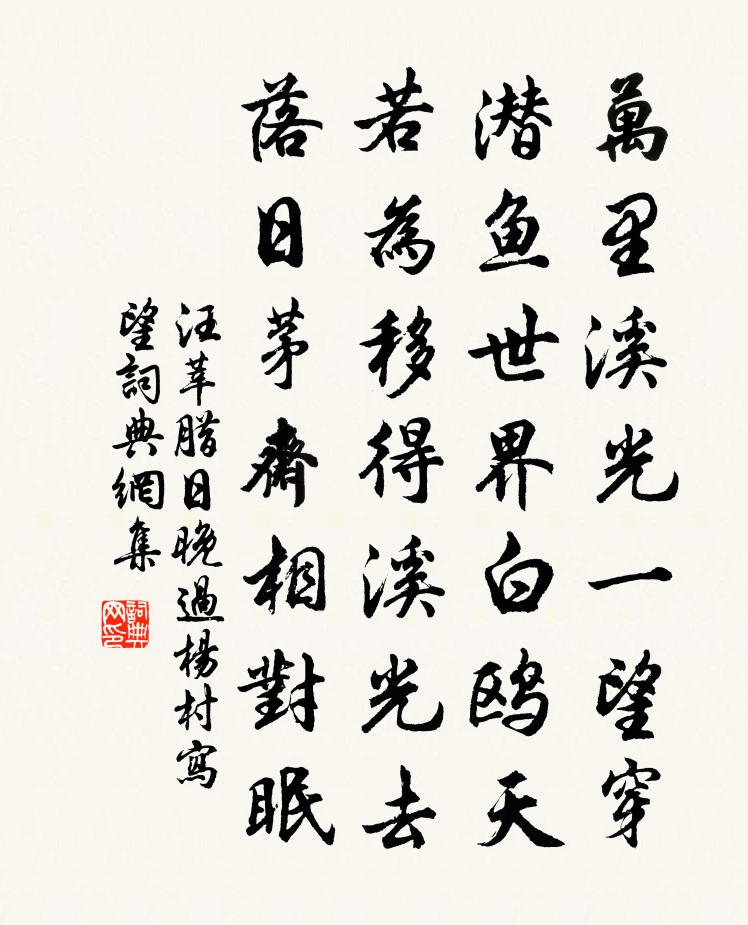 萬里溪光一望穿
潜鱼世界白鸥天
若為移得溪光去
落日茅齋相對眠
汪莘腊日晚過楊村寫
望詞典網集
詞典网印